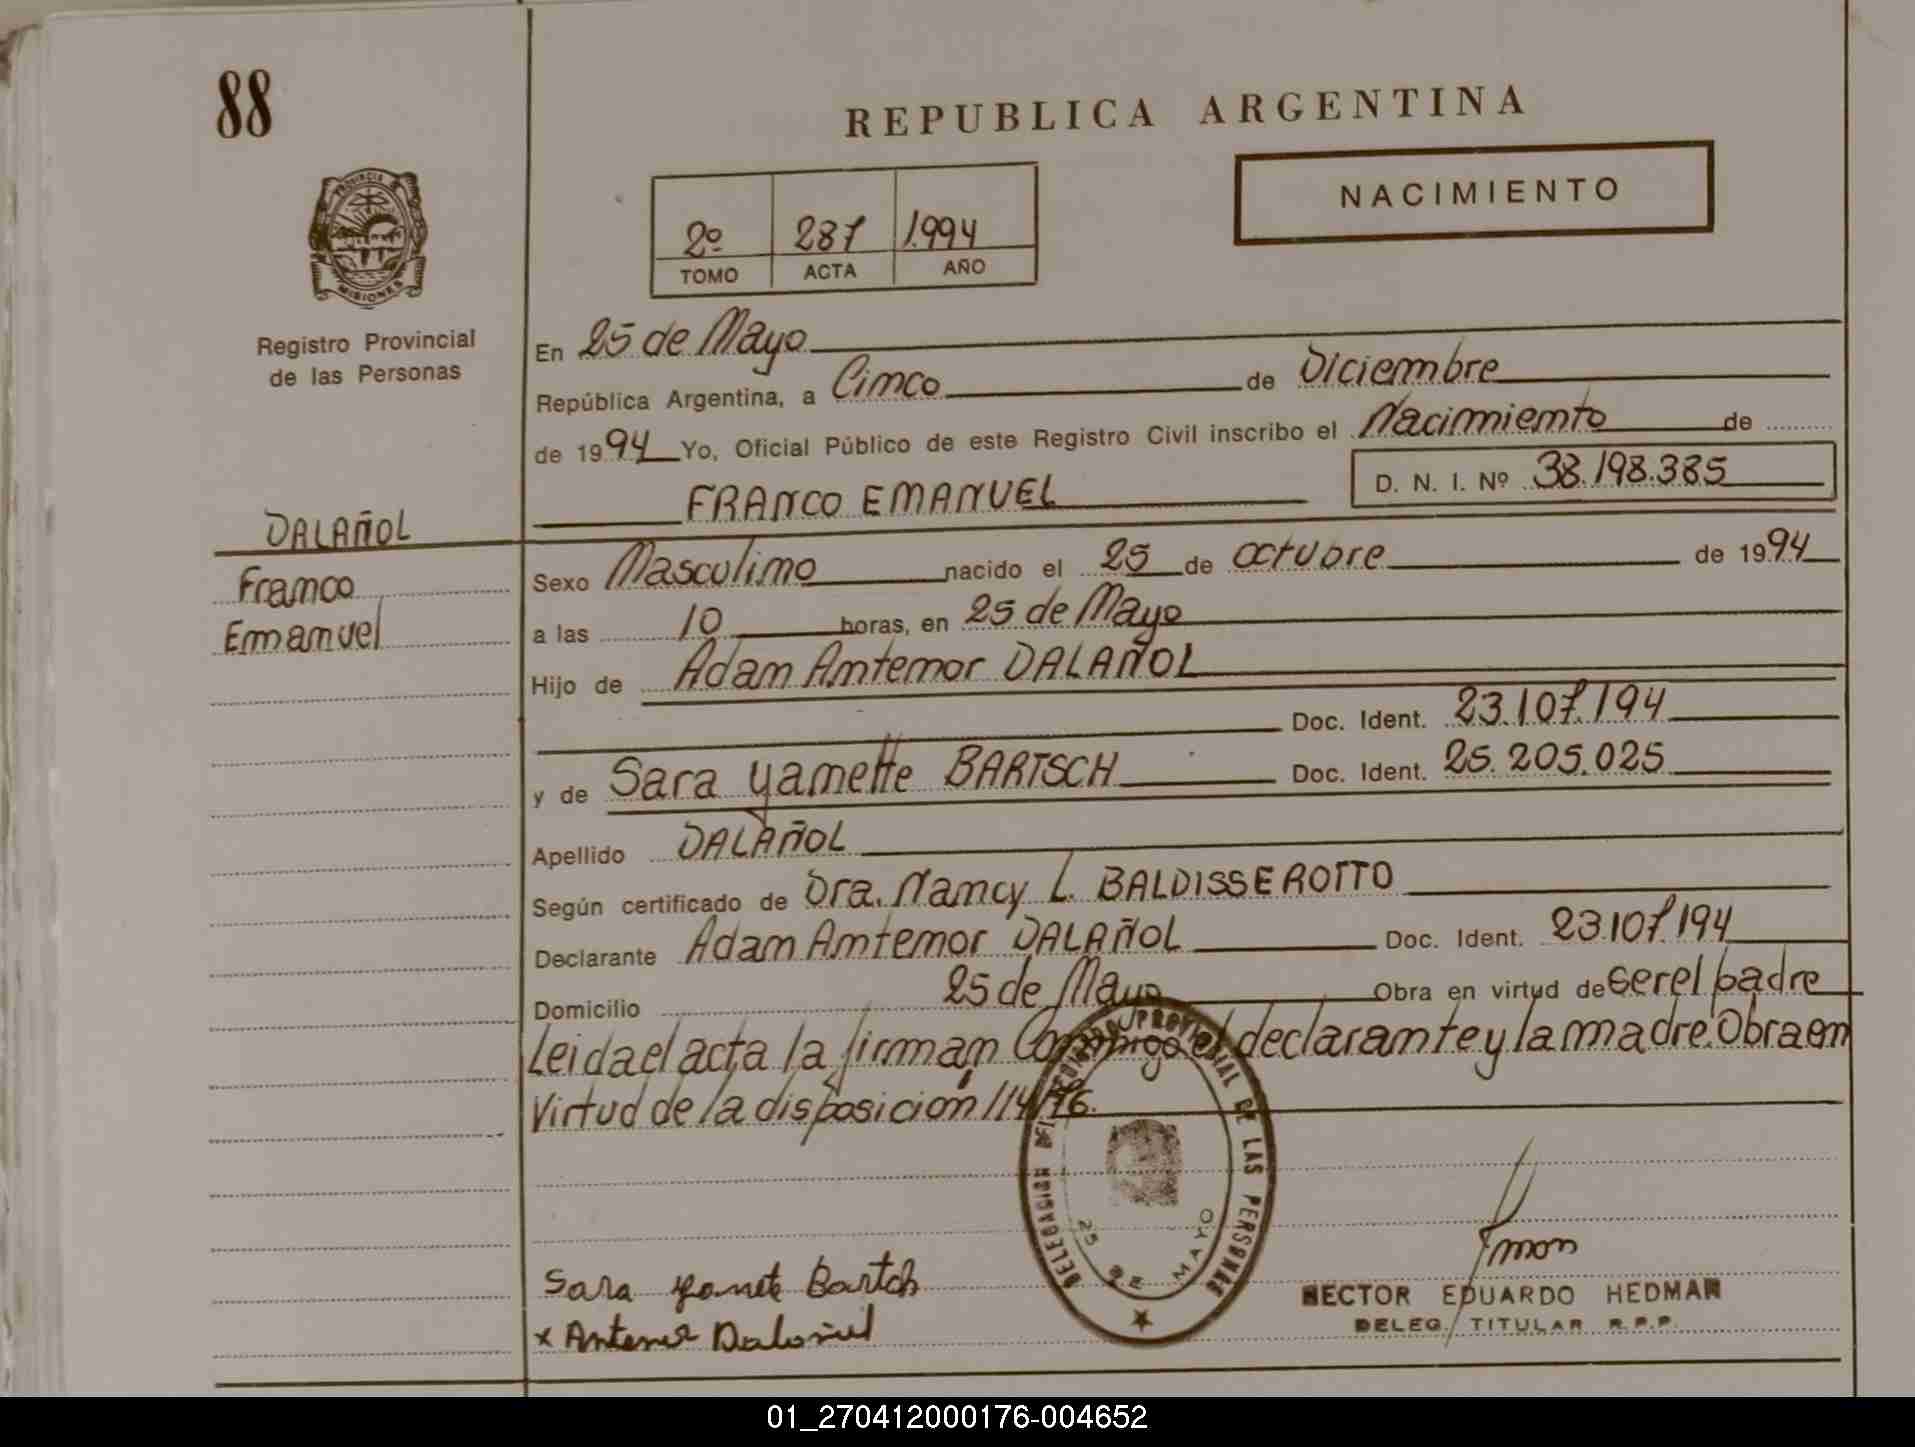 88
REPUBLICA ARGENTINA
NACIMIENTO
2º 287 1.994
TOMO ACTA AÑO
PROVINCIA DE MISIONES
Registro Provincial
de las Personas
En 25 de Mayo
República Argentina, a Cinco de Diciembre
de 1994 Yo, Oficial Público de este Registro Civil inscribo el Nacimiento de
FRANCO EMANUEL D. N. I. Nº 38.198.385
DALAÑOL
Franco
Emanuel
Sexo Masculino nacido el 25 de octubre de 1994
a las 10 horas, en 25 de Mayo
Hijo de Adam Antenor DALAÑOL
Doc. Ident. 23.107.194
y de Sara Yanette BARTSCH Doc. Ident. 25.205.025
Apellido DALAÑOL
Según certificado de Dra. Nancy L. BALDISSEROTTO
Declarante Adam Antenor DALAÑOL Doc. Ident. 23.107.194
Domicilio 25 de Mayo Obra en virtud de ser el padre
Leida el acta la firman Conmigo el declarante y la madre. Obra en
Virtud de la disposición 114/76.
DELEGACION DEL REGISTRO PROVINCIAL DE LAS PERSONAS
25 DE MAYO
Sara Yanet Bartch
x Antenor Dalañol
HECTOR EDUARDO HEDMAN
DELEG. TITULAR R.P.P.
01_270412000176-004652